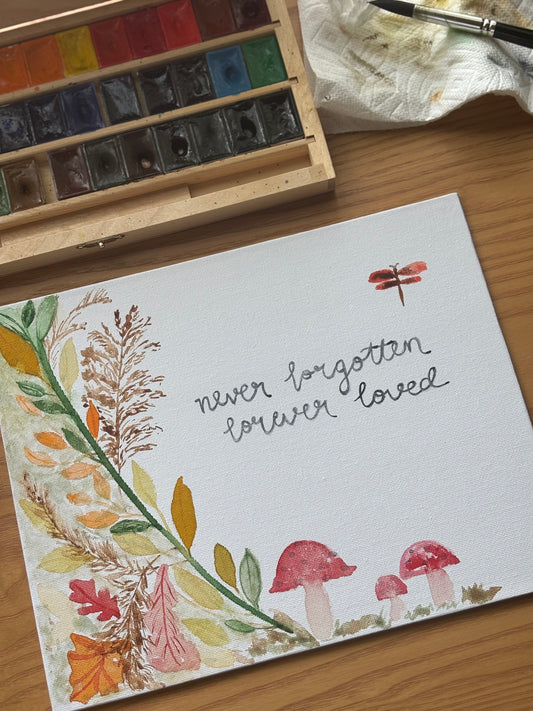 never forgotten
forever loved